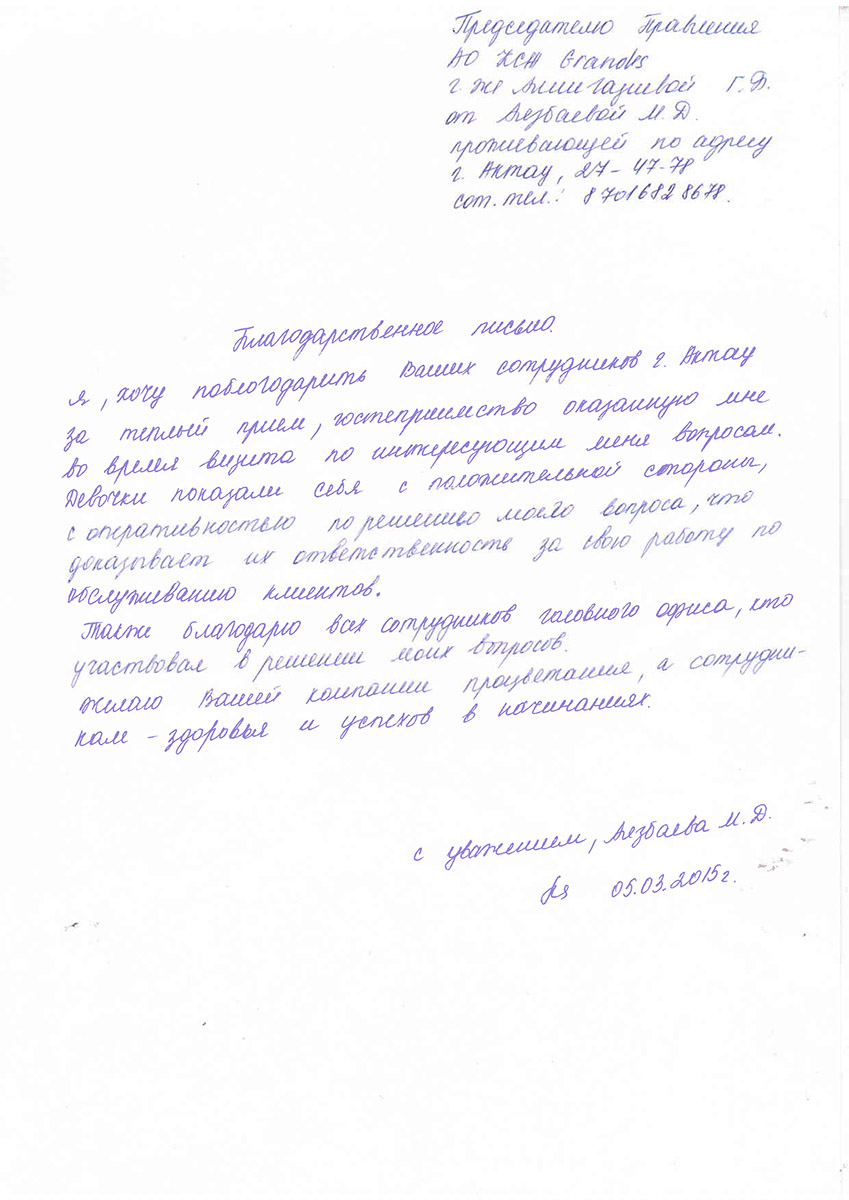 Председателю Правления
АО КСЖ Grandes
г-же Амингазиевой Г.Б.
от Аезбаевой М.Д.
проживающей по адресу
г. Актау, 27-47-78
сот. тел.: 8 701 682 8678.
Благодарственное письмо.
Я, хочу поблогодарить Ваших сотрудников г. Актау
за теплый прием, гостеприимство оказанную мне
во время визита по интересующим меня вопросам.
Девочки показали себя с положительной стороны,
с оперативностью по решению моего вопроса, что
доказывает их ответственность за свою работу по
обслуживанию клиентов.
Также благодарю всех сотрудников головного офиса, кто
участвовал в решении моих вопросов.
Желаю Вашей компании процветания, а сотрудни-
кам - здоровья и успехов в начинаниях.
с уважением, Аезбаева М.Д.
05.03.2015г.